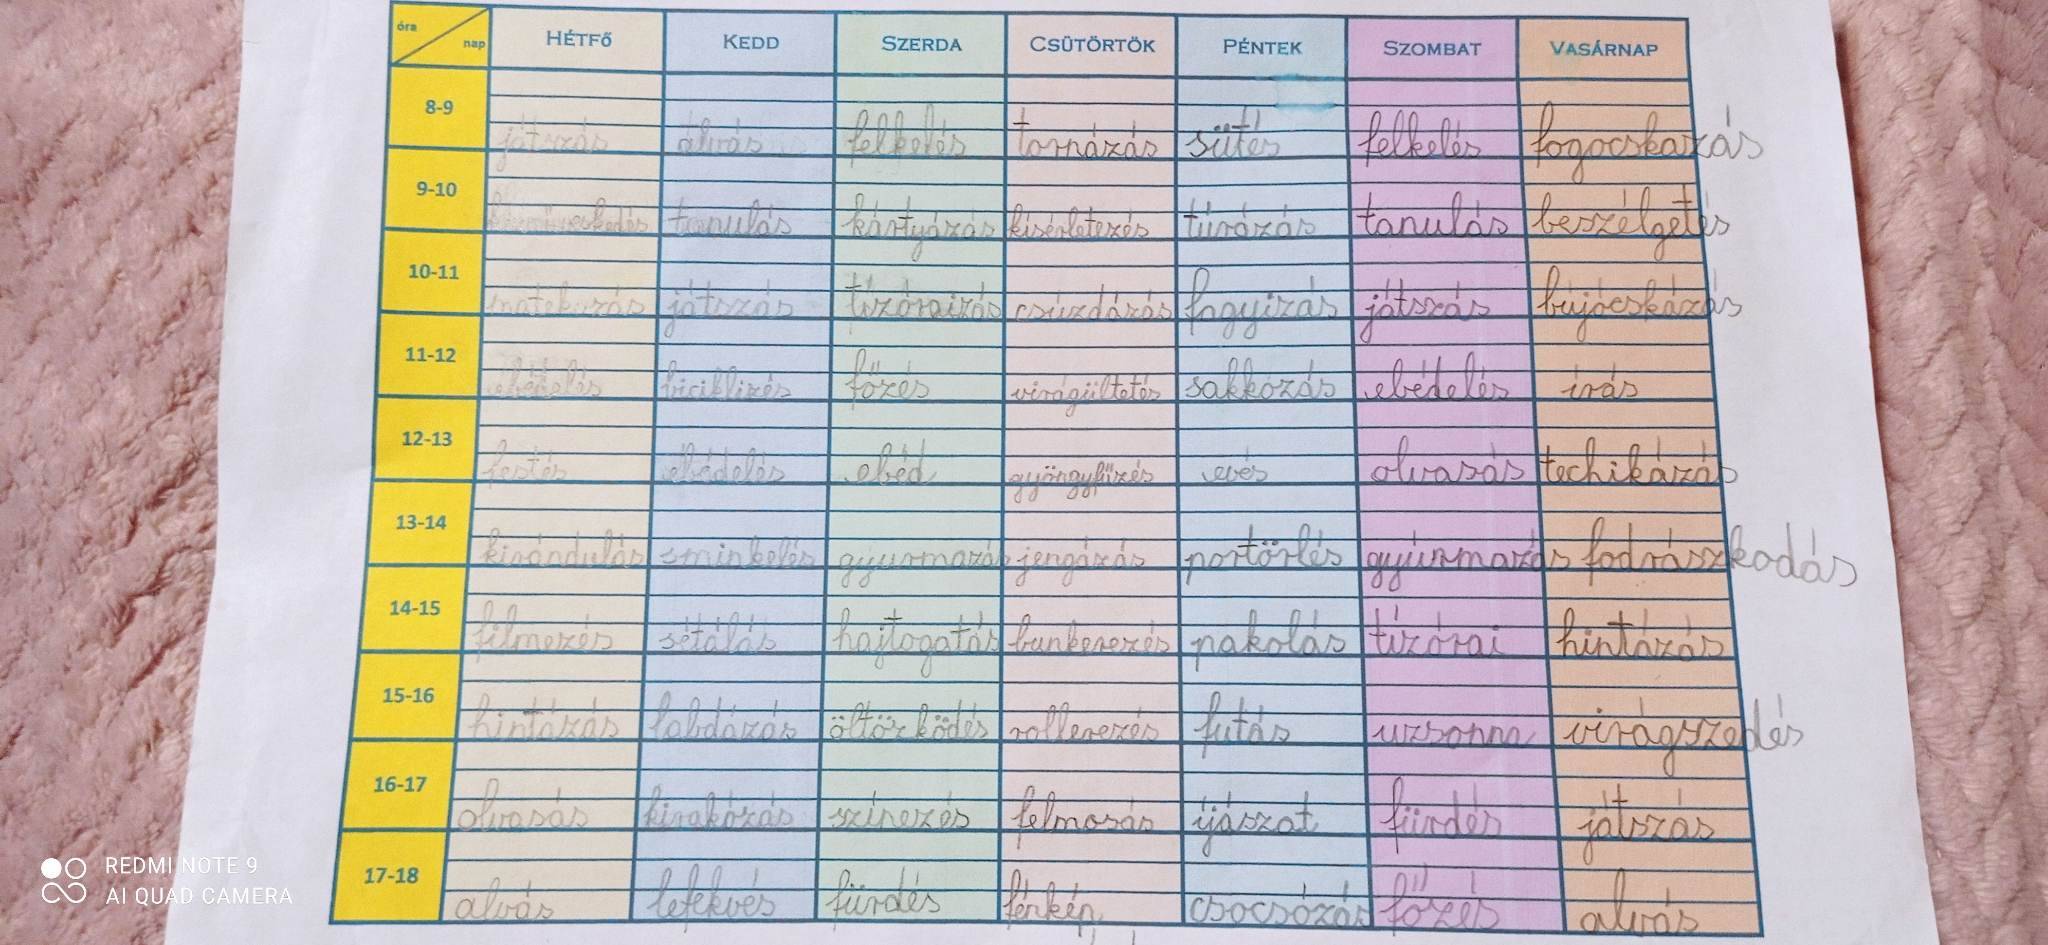 óra nap HÉTFŐ KEDD SZERDA CSÜTÖRTÖK PÉNTEK SZOMBAT VASÁRNAP
8-9 játszás alvás felkelés tornázás sütés felkelés fogocskazás
9-10 tanulás kártyázás kisérletezés túrázás tanulás beszélgetés
10-11 matekozás játszás tízóraizás csúzdázás fagyizás játszás bújócskázás
11-12 ebédelés biciklizés főzés virágültetés sakkozás ebédelés irás
12-13 festés ebédelés ebéd gyöngyfűzés evés olvasás techikázás
13-14 kirándulás sminkelés gyurmazás jengázás portörlés gyúrmazás fodrászkodás
14-15 filmezés sétálás hajtogatás bunkerezés pakolás tízórai hintázás
15-16 hintázás labdázás öltözködés rollerezés futás uzsonna virágszedés
16-17 olvasás kirakózás színezés felmosás íjászat fürdés játszás
17-18 alvás lefekvés fürdés fénkép csocsózás főzés alvás
REDMI NOTE 9
AI QUAD CAMERA